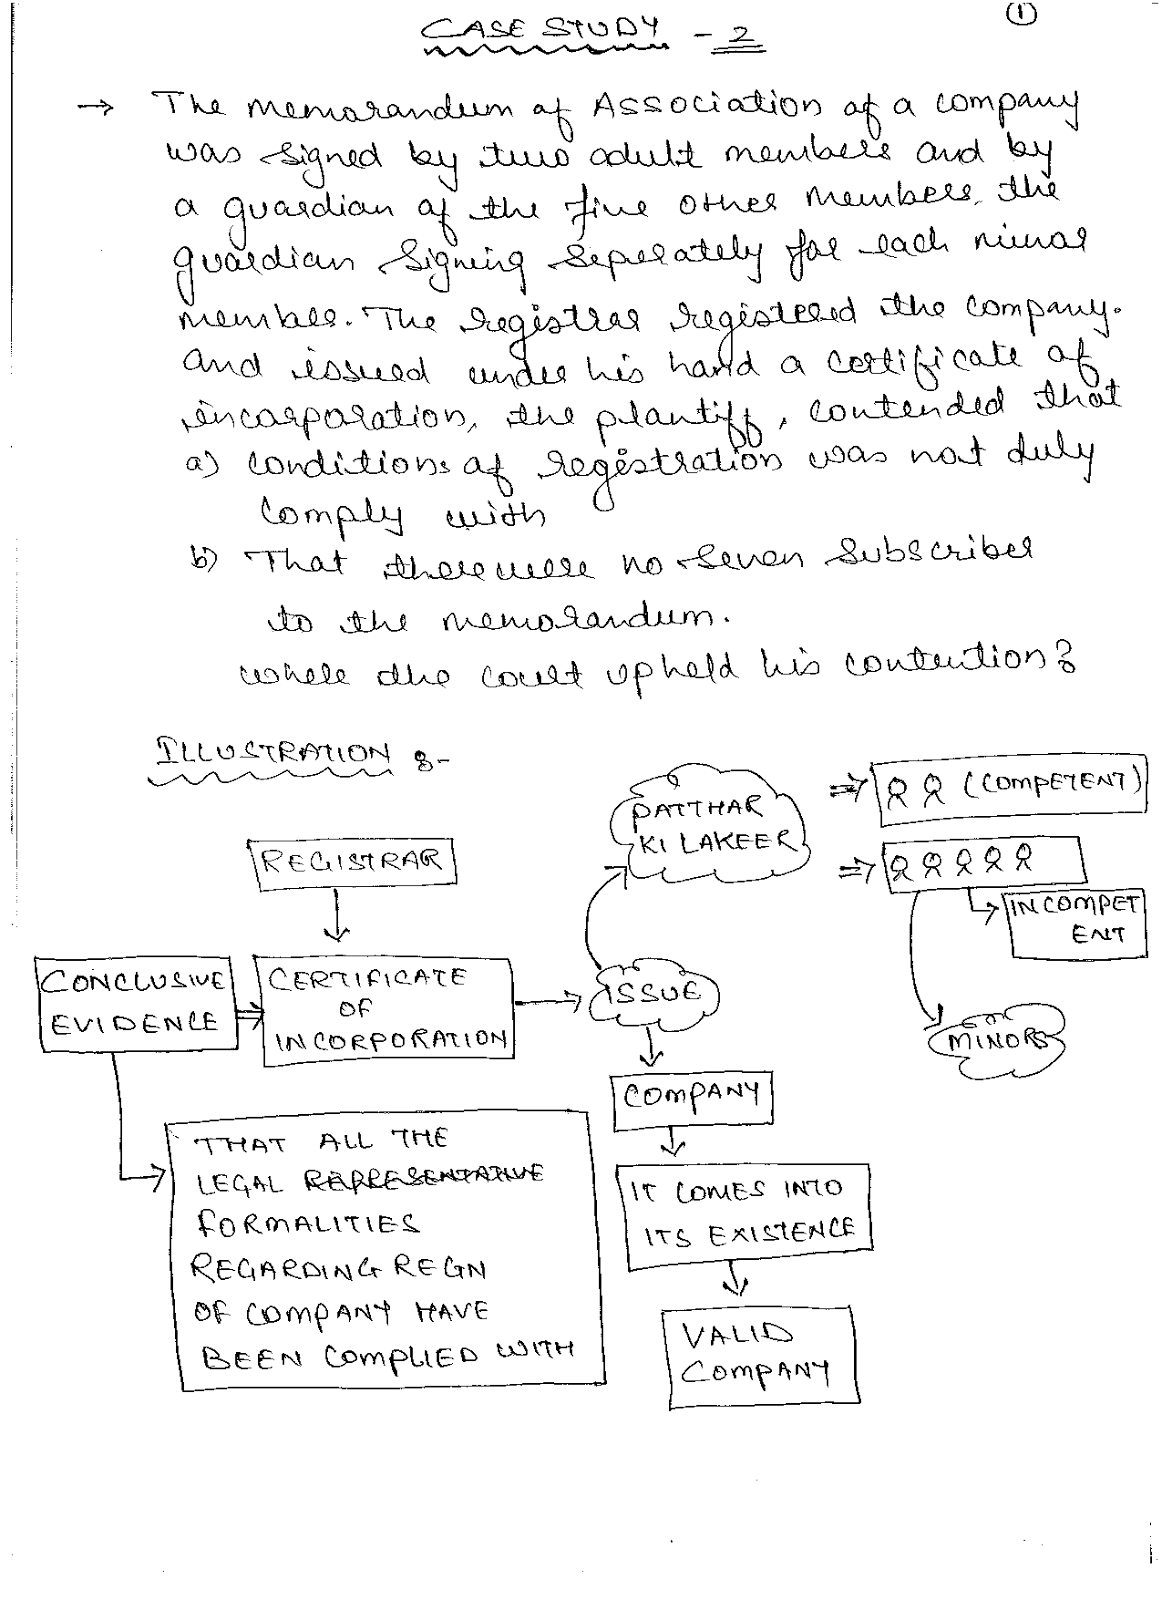 (1)
CASE STUDY - 2
→ The Memorandum of Association of a company
was signed by two adult members and by
a guardian of the five other members, the
guardian signing seperately for each minor
member. The registrar registered the company.
and issued under his hand a certificate of
incorporation, the plantiff, contended that
a) conditions of registration was not duly
comply with
b) That there were no seven subscriber
to the memorandum.
where the court upheld his contention?
ILLUSTRATION :-
PATTHAR
KI LAKEER
⇒ (COMPETENT)
⇒
INCOMPET
ENT
MINORS
REGISTRAR
CONCLUSIVE
EVIDENCE
CERTIFICATE
OF
INCORPORATION
ISSUE
COMPANY
IT COMES INTO
ITS EXISTENCE
VALID
COMPANY
THAT ALL THE
LEGAL REPRESENTATIVE
FORMALITIES
REGARDING REGN
OF COMPANY HAVE
BEEN COMPLIED WITH